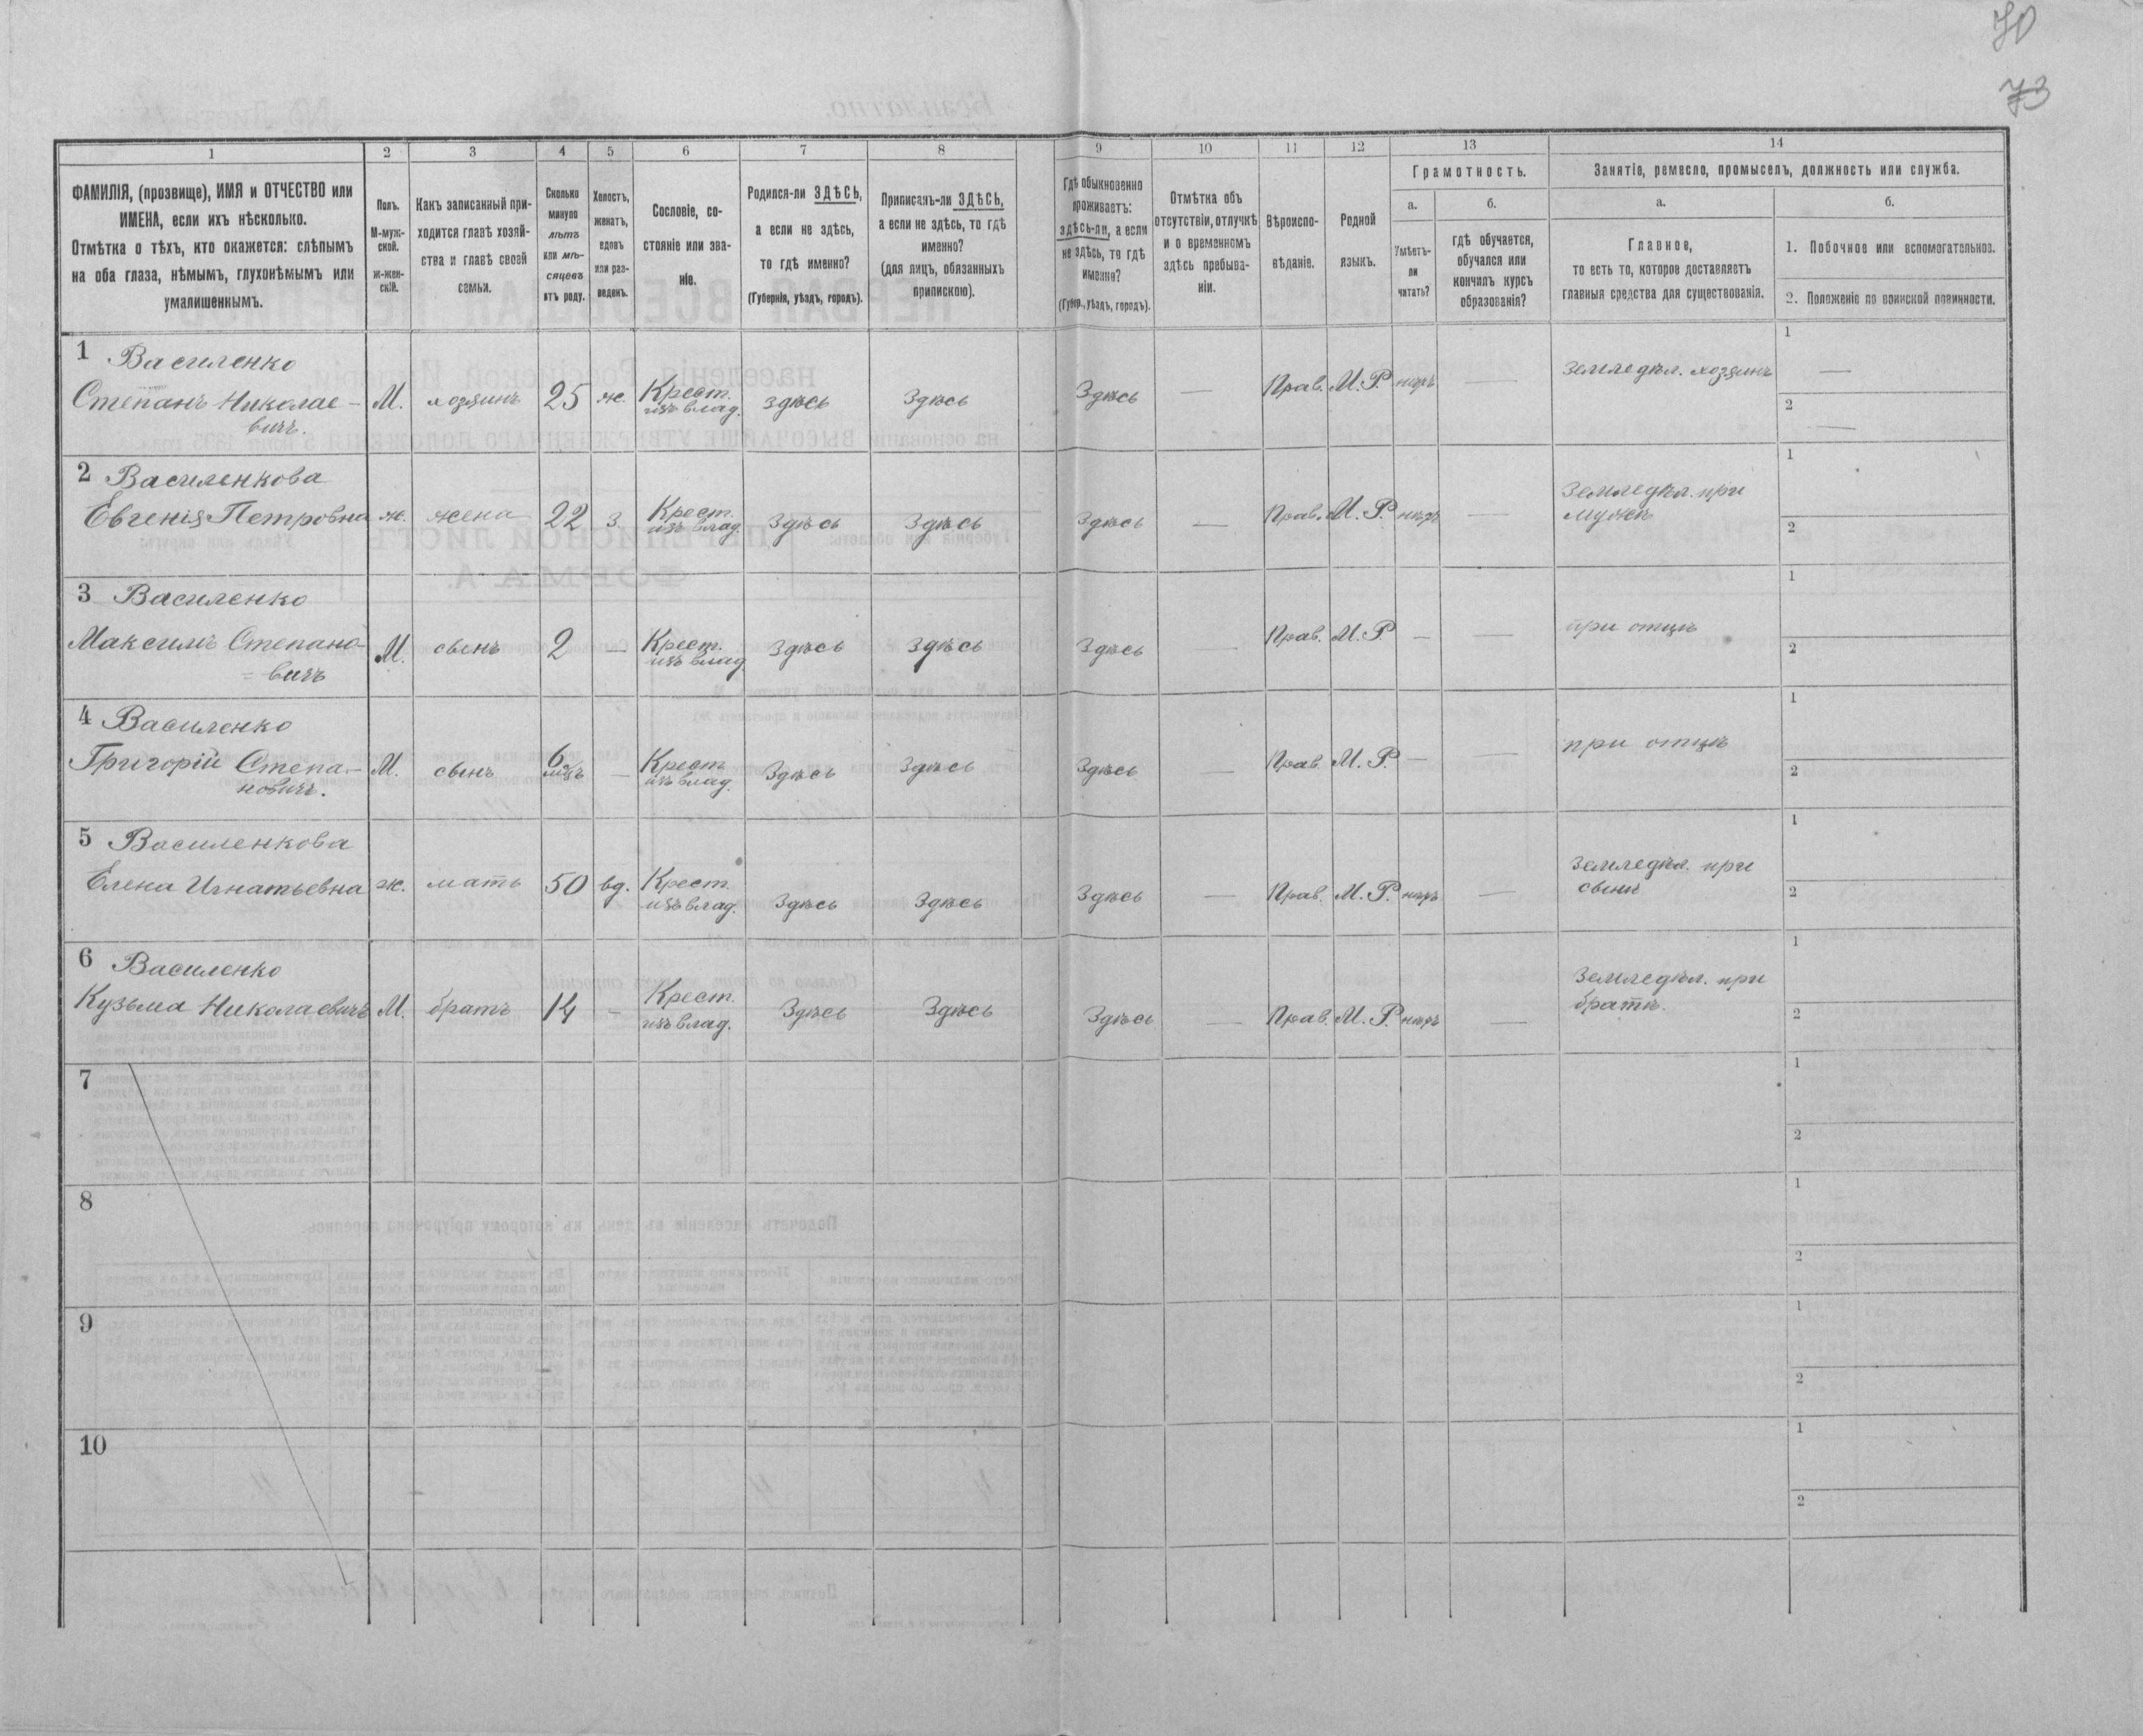 70
73
1
2
3
4
5
6
7
8
9
10
11
12
13
14
ФАМИЛІЯ, (прозвище), ИМЯ и ОТЧЕСТВО или
ИМЕНА, если ихъ нѣсколько.
Отмѣтка о тѣхъ, кто окажется: слѣпымъ
на оба глаза, нѣмымъ, глухонѣмымъ или
умалишеннымъ.
Полъ.
М-муж-
ской.
ж-жен-
скій.
Какъ записанный при-
ходится главѣ хозяй-
ства и главѣ своей
семьи.
Сколько
минуло
лѣтъ
или мѣ-
сяцевъ
отъ роду.
Холостъ,
женатъ,
вдовъ
или раз-
веденъ.
Сословіе, со-
стояніе или зва-
ніе.
Родился-ли ЗДѢСЬ,
а если не здѣсь,
то гдѣ именно?
(Губернія, уѣздъ, городъ).
Приписанъ-ли ЗДѢСЬ,
а если не здѣсь, то гдѣ
именно?
(для лицъ, обязанныхъ
припискою).
Гдѣ обыкновенно
проживаетъ:
здѣсь-ли, а если
не здѣсь, то гдѣ
именно?
(Губер., уѣздъ, городъ).
Отмѣтка объ
отсутствіи, отлучкѣ
и о временномъ
здѣсь пребыва-
ніи.
Вѣроиспо-
вѣданіе.
Родной
языкъ.
Грамотность.
а.
Умѣетъ-
ли
читать?
б.
гдѣ обучается,
обучался или
кончилъ курсъ
образованія?
Занятіе, ремесло, промыселъ, должность или служба.
а.
Главное,
то есть то, которое доставляетъ
главныя средства для существованія.
б.
1. Побочное или вспомогательное.
2. Положеніе по воинской повинности.
1 Василенко
Степанъ Николае-
вичъ.
М.
хозяинъ
25
ж.
Крест.
изъ влад.
здѣсь
Здѣсь
Здѣсь
—
Прав.
М.Р.
нѣтъ
—
Земледѣл. хозяинъ
1
—
2
—
2 Василенкова
Евгенія Петровна
ж.
жена
22
з.
Крест.
изъ влад.
Здѣсь
Здѣсь
Здѣсь
—
Прав.
М.Р.
нѣтъ
—
Земледѣл. при
мужѣ
1
2
3 Василенко
Максимъ Степано-
вичъ
М.
сынъ
2
—
Крест.
изъ влад.
Здѣсь
здѣсь
Здѣсь
—
Прав.
М.Р.
—
—
при отцѣ
1
2
4 Василенко
Григорій Степа-
новичъ.
М.
сынъ
6
мцъ
—
Крест
изъ влад.
Здѣсь
Здѣсь
Здѣсь
—
Прав.
М.Р.
—
—
при отцѣ
1
2
5 Василенкова
Елена Игнатьевна
ж.
мать
50
вд.
Крест.
изъ влад.
Здѣсь
Здѣсь
Здѣсь
—
Прав.
М.Р.
нѣтъ
—
Земледѣл. при
сынѣ
1
2
6 Василенко
Кузьма Николаевичъ
М.
братъ
14
—
Крест.
изъ влад.
Здѣсь
Здѣсь
Здѣсь
—
Прав.
М.Р.
нѣтъ
—
Земледѣл. при
братѣ.
1
2
7
1
2
8
1
2
9
1
2
10
1
2